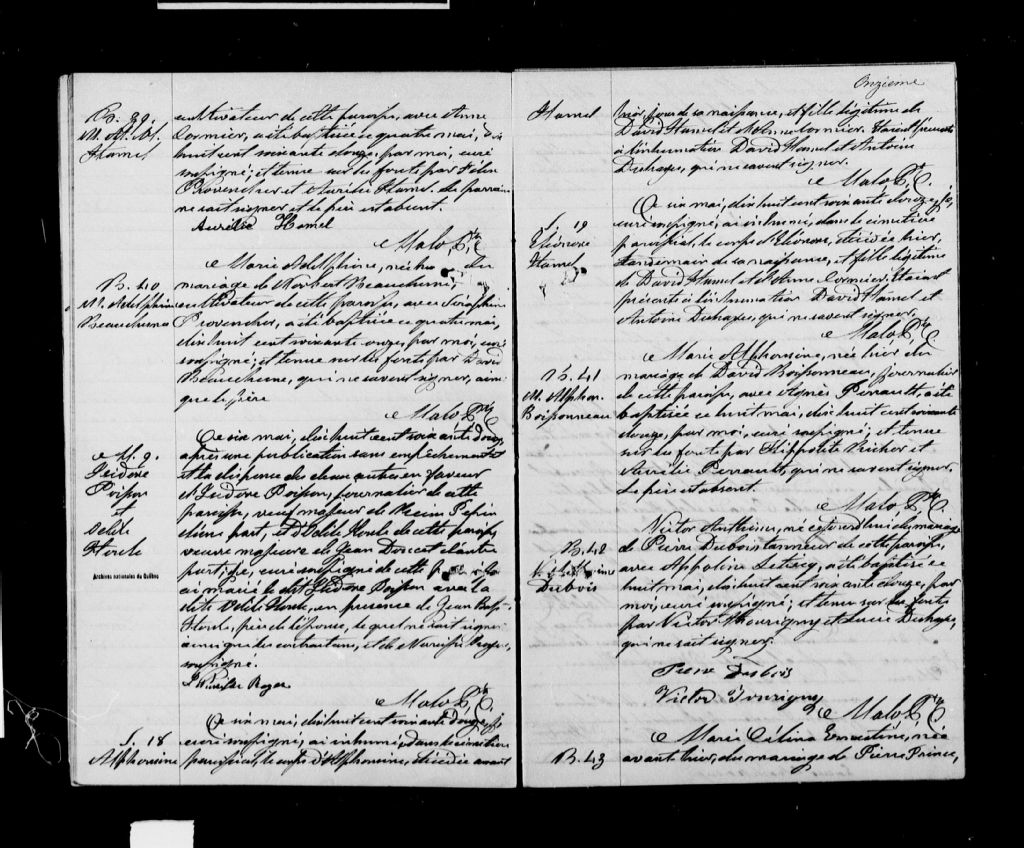 B. 39.
M. M. M.
Hamel
cultivateur de cette paroisse, avec Anne
Cormier, a été baptisée ce quatre mai, dix
huit cent soixante douze, par moi, curé
soussigné; et tenue sur les fonts par Félix
Provencher et Aurélie Hamel. Le parrain
ne sait signer et le père est absent.
Aurélie Hamel
Malo, Ptre
B. 40
M. Adelphine
Beauchesne
Marie Adelphine, née hier du
mariage de Norbert Beauchesne,
cultivateur de cette paroisse, avec Séraphine
Provencher, a été baptisée ce quatre mai,
dix huit cent soixante douze, par moi, curé
soussigné; et tenue sur les fonts par David
Beauchesne, qui ne savent signer, ainsi
que le père
Malo, Ptre
M. 9.
Isidore
Poisson
et
Odile
Houle
Ce six mai, dix huit cent soixante douze,
après une publication sans empêchement
et la dispense des deux autres en faveur
d'Isidore Poisson, journalier de cette
paroisse, veuf majeur de Pepin
d'une part, et d'Odile Houle de cette paroisse,
veuve majeure de Jean Doucet d'autre
part; je, curé soussigné de cette paroisse
ai marié le dit Isidore Poisson avec la
dite Odile Houle, en présence de Jean Bapt.
Houle, père de l'épouse, lequel ne sait signer
ainsi que les contractants, et de Narcisse Roger
soussigné.
Narcisse Roger
Malo, Ptre
Archives nationales du Québec
S. 18
Alphonsine
Ce six mai, dix huit cent soixante douze, je,
curé soussigné, ai inhumé, dans le cimetière
paroissial, le corps d'Alphonsine, décédée avant
Onzième
Hamel
hier, jour de sa naissance, et fille légitime de
David Hamel et d'Anne Cormier. Etaient présents
à l'inhumation David Hamel et Antoine
Duhaime, qui ne savent signer.
Malo, Ptre
S. 19
Eléonore
Hamel
Ce six mai, dix huit cent soixante douze, je,
curé soussigné, ai inhumé, dans le cimetière
paroissial, le corps d'Eléonore, décédée hier,
lendemain de sa naissance, et fille légitime
de David Hamel et d'Anne Cormier. Etaient
présents à l'inhumation David Hamel et
Antoine Duhaime, qui ne savent signer.
Malo, Ptre
B. 41
M. Alphon.
Boissonneau
Marie Alphonsine, née hier du
mariage de David Boissonneau, journalier
de cette paroisse, avec Agnès Perrault, a été
baptisée ce huit mai, dix huit cent soixante
douze, par moi, curé soussigné; et tenue
sur les fonts par Hippolite Richer et
Aurélie Perrault, qui ne savent signer.
Le père est absent.
Malo, Ptre
B. 42
Dubois
Victor Anthime, né aujourd'hui du mariage
de Pierre Dubois tanneur de cette paroisse,
avec Appoline, a été baptisé ce
huit mai, dix huit cent soixante douze, par
moi, curé soussigné; et tenu sur les fonts
par Victor Tourigny et Lucie Duhaime,
qui ne sait signer.
Pierre Dubois
Victor Tourigny
Malo, Ptre
B. 43
Marie Célina Ernestine, née
avant hier, du mariage de Pierre Prince,